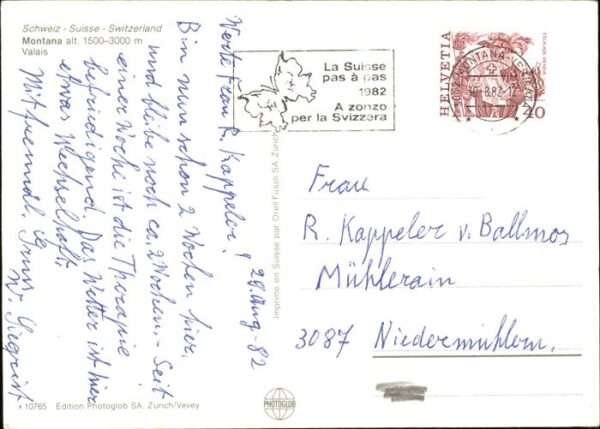 Schweiz - Suisse - Switzerland
Montana alt. 1500-3000 m
Valais
Werte Frau R. Kappeler! 29. Aug. 82
Bin nun schon 2 Wochen hier.
und bleibe noch ca. 2 Wochen. - Seit
einer Woche ist die Therapie
befriedigend. Das Wetter ist hier
etwas Wechselhaft.
Mit freundl. Gruss W. Siegrist
La Suisse
pas à pas
1982
A zonzo
per la Svizzera
HELVETIA
40
MONTANA-VERMALA
Frau
R. Kappeler v. Ballmos
Mühlerain
3087 Niedermuhlern.
Imprimé en Suisse par Orell Füssli SA Zurich
10765 Edition Photoglob SA, Zurich/Vevey
PHOTOGLOB